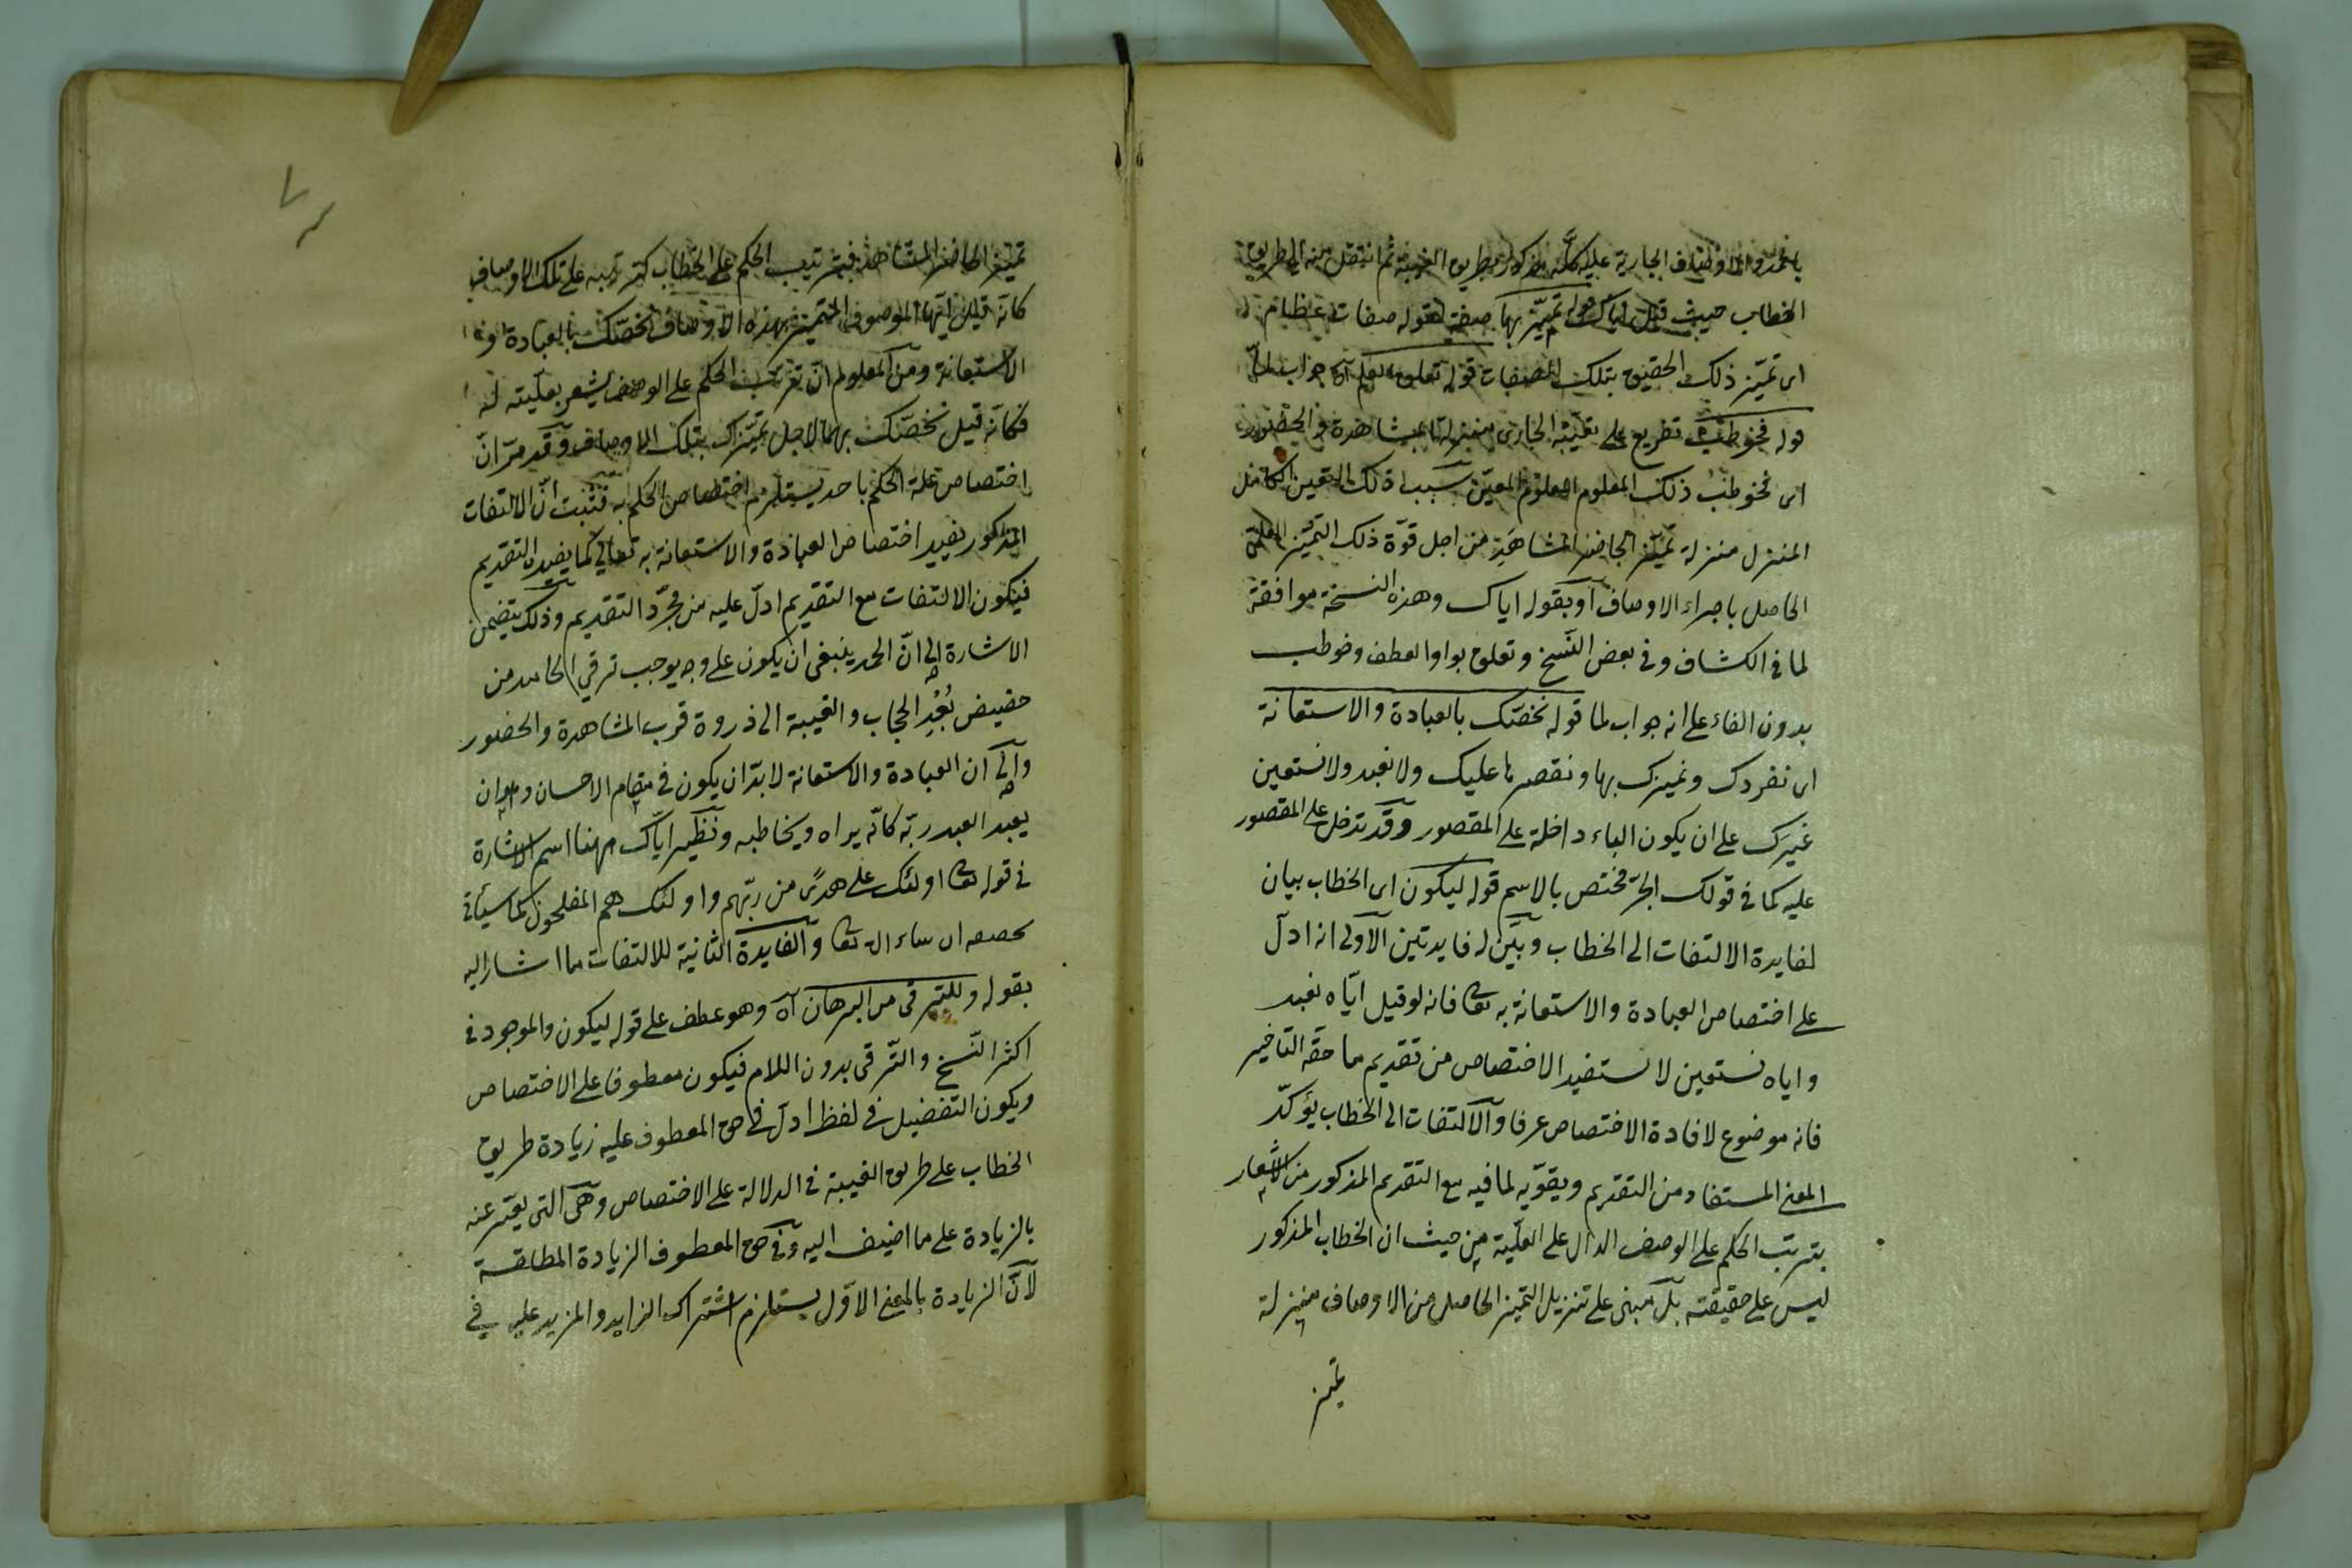 الجارية عليه كأنه مذكور بطريق الغيبة ثم انتقل منه الى طريق
الخطاب حيث قيل اياك قوله تميّز بها صفة لقوله صفات عظام
اى تميّز ذلك الحقيق بتلك الصفات قوله تعلق العلم آه جواب لمّا
قوله فخوطب تفريع على تعلق الجارى منزلة المشاهدة والحضور
اى فخوطب ذلك المعلوم المعيّن بسبب ذلك التعين الكامل
المنزل منزلة تميّز الحاضر المشاهَد من اجل قوّة ذلك التميّز العلمى
الحاصل باجراء الاوصاف او بقوله اياك وهذه النسخة موافقة
لما فى الكشاف وفى بعض النّسخ وتعلق بواو العطف وخوطب
بدون الفاء على انه جواب لما قوله نخصّك بالعبادة والاستعانة
اى نفردك ونميزك بها ونقصرها عليك ولا نعبد ولا نستعين
غيرك على ان يكون الباء داخلة على المقصور وقد تدخل على المقصور
عليه كما فى قولك الجرّ مختص بالاسم قوله ليكون اى الخطاب بيان
لفايدة الالتفات الى الخطاب وبيّن له فايدتين الاولى انه ادلّ
على اختصاص العبادة والاستعانة به تعا فانه لو قيل ايّاه نعبد
واياه نستعين لاستفيد الاختصاص من تقديم ما حقه التاخير
فانه موضوع لافادة الاختصاص عرفا والالتفات الى الخطاب يؤكّد
المعنى المستفاد من التقديم ويقوّيه لما فيه مع التقديم المذكور من الاشعار
بترتب الحكم على الوصف الدال على العلّية من حيث ان الخطاب المذكور
ليس على حقيقته بل مبنى على تنزيل التميز الحاصل من الاوصاف منزلة
تميز
٧
تميّز الحاضر المشاهَد فترتيب الحكم على الخطاب كترتبه على تلك الاوصاف
كانّه قيل ايّها الموصوف المتميّز بهذه الاوصاف نخصّك بالعبادة و
الاستعانة ومن المعلوم انّ ترتيب الحكم على الوصف يشعر بعلّيته له
فكانّه قيل نخصّك بهما لاجل تميّزك بتلك الاوصاف وقد مرّ انّ
اختصاص علة الحكم باحد يستلزم اختصاص الحكم به فثبت انّ الالتفات
المذكور يفيد اختصاص العبادة والاستعانة به تعالى كما يفيده التقديم
فيكون الالتفات مع التقديم ادلّ عليه من مجرّد التقديم وذلك يتضمن
الاشارة الى انّ الحمد ينبغى ان يكون على وجه يوجب ترقي الحامد من
حضيض بُعْدِ الحجاب والغيبة الى ذروة قرب المشاهدة والحضور
والى ان العبادة والاستعانة لا بدّ ان يكون فى مقام الاحسان وهو ان
يعبد العبد ربّه كانّه يراه ويخاطبه ونظير ايّاك ههنا اسم الاشارة
فى قوله تعا اولئك على هدًى من ربّهم واولئك هم المفلحون كما سيأتى
ان شاء الله تعا والفايدة الثانية للالتفات ما اشار اليه
بقوله وللترقى من البرهان آه وهو عطف على قوله ليكون والموجود فى
اكثر النّسخ والتّرقى بدون اللام فيكون معطوفا على الاختصاص
ويكون التفضيل فى لفظ ادلّ فى حق المعطوف عليه زيادة طريق
الخطاب على طريق الغيبة فى الدلالة على الاختصاص وهى التى يعبّر عنه
بالزيادة على ما اضيف اليه وفى حق المعطوف الزيادة المطلقة
لانّ الزيادة بالمعنى الاوّل يستلزم اشتراك الزايد والمزيد عليه في